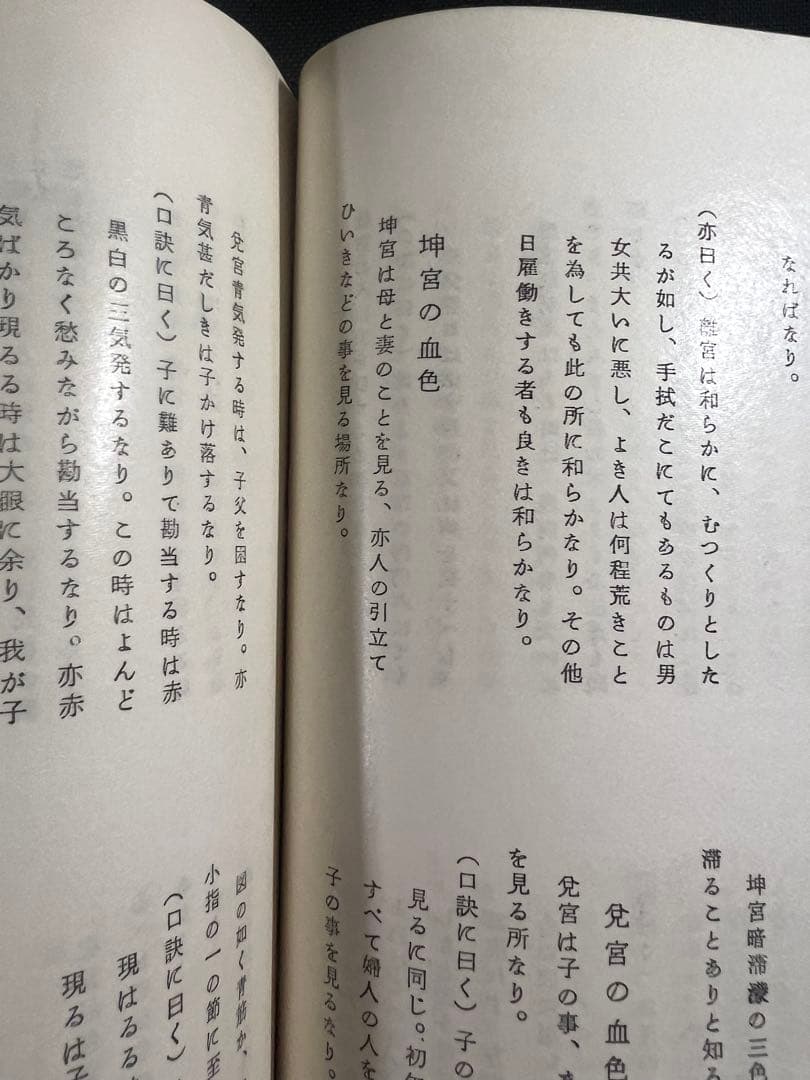 なればなり。
（亦曰く）離宮は和らかに、むつくりとした
るが如し、手拭だこにてもあるものは男
女共大いに悪し、よき人は何程荒きこと
を為しても此の所に和らかなり。その他
日雇働きする者も良きは和らかなり。
坤宮の血色
坤宮は母と妻のことを見る、亦人の引立て
ひいきなどの事を見る場所なり。
坤宮暗滞濛の三色
滞ることありと知る
兌宮の血色
兌宮は子の事、
を見る所なり。
（口訣に曰く）子の
見るに同じ。初
すべて婦人の人を
子の事を見るなり。
兌宮青気発する時は、子父を困すなり。亦
青気甚だしきは子かけ落するなり。
（口訣に曰く）子に難ありで勘当する時は赤
黒白の三気発するなり。この時はよんど
ころなく愁みながら勘当するなり。亦赤
気ばかり現るる時は大眼に余り、我が子
図の如く青筋か、
小指の一の節に至
（口訣に曰く）
現はるる
現るは子